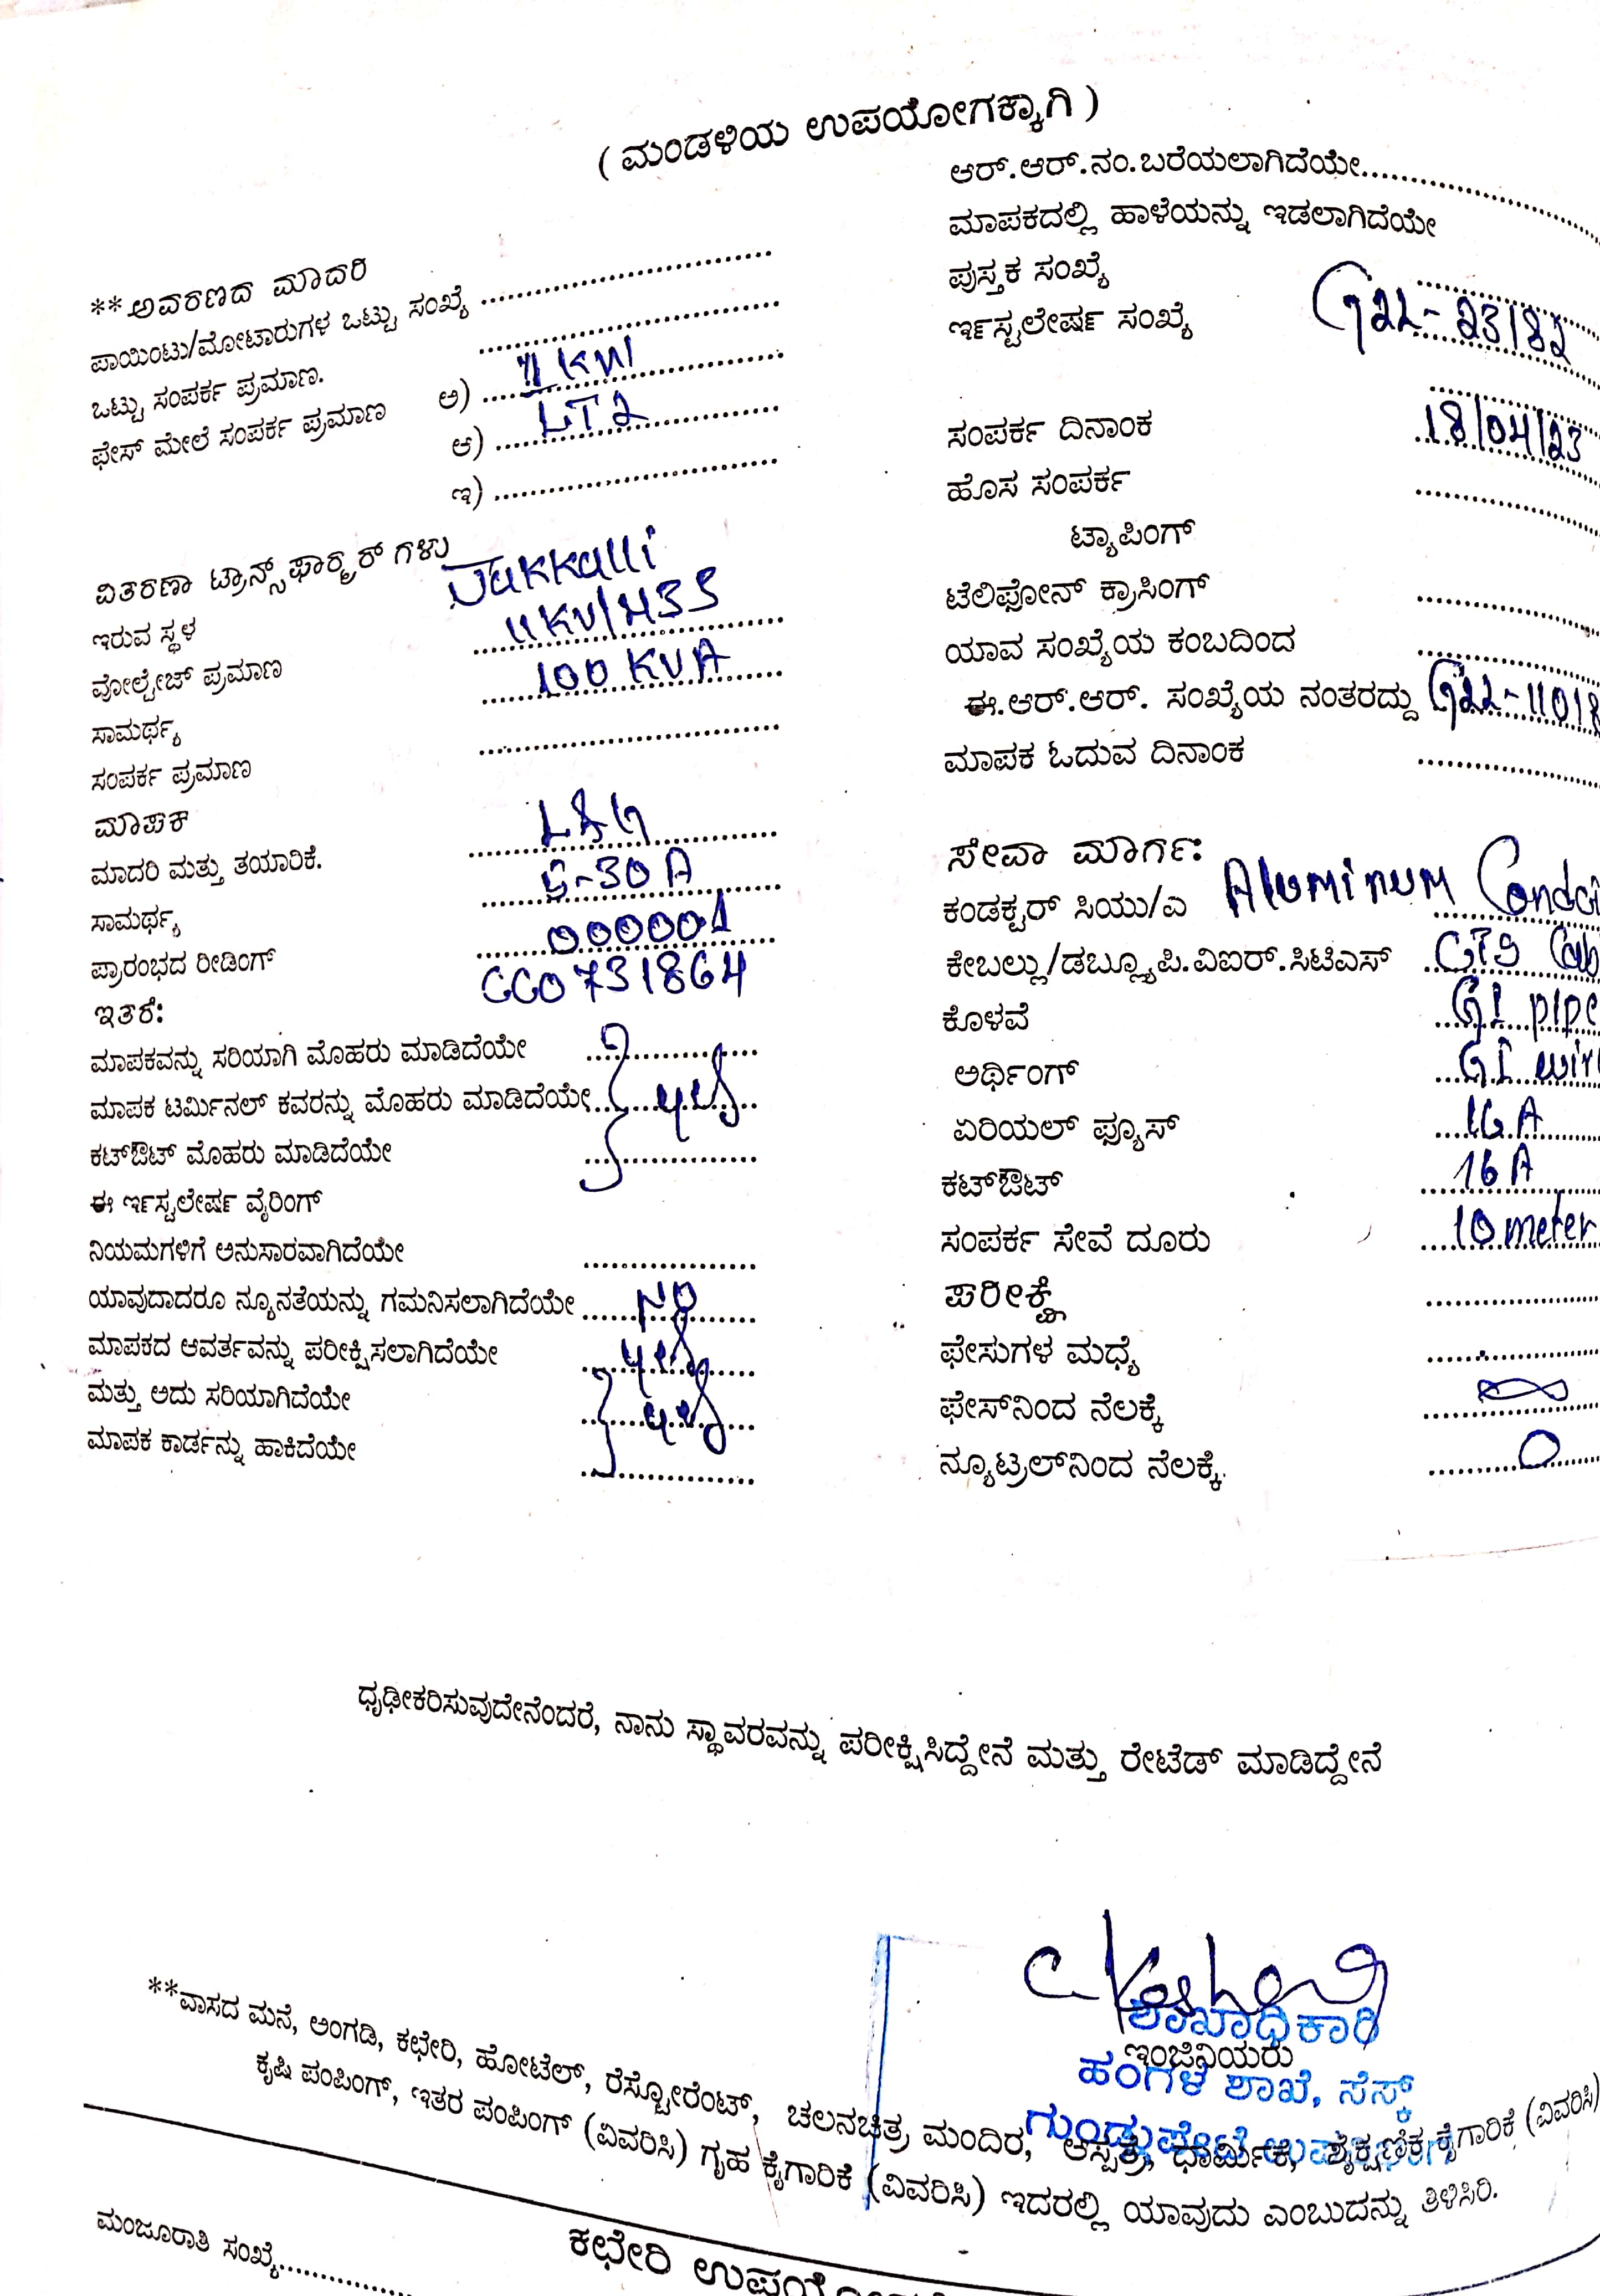 ( ಮಂಡಳಿಯ ಉಪಯೋಗಕ್ಕಾಗಿ )
**ಅವರಣದ ಮಾದರಿ
ಪಾಯಿಂಟು/ಮೋಟಾರುಗಳ ಒಟ್ಟು ಸಂಖ್ಯೆ
ಒಟ್ಟು ಸಂಪರ್ಕ ಪ್ರಮಾಣ.
ಫೇಸ್ ಮೇಲೆ ಸಂಪರ್ಕ ಪ್ರಮಾಣ ಅ) 1 KW
ಆ) LT2
ಇ)
ವಿತರಣಾ ಟ್ರಾನ್ಸ್‌ಫಾರ್‍ಮರ್ ಗಳು
ಇರುವ ಸ್ಥಳ Jakkalli
ವೋಲ್ಟೇಜ್ ಪ್ರಮಾಣ 11KV/433
ಸಾಮರ್ಥ್ಯ 100 KVA
ಸಂಪರ್ಕ ಪ್ರಮಾಣ
ಮಾಪಕ
ಮಾದರಿ ಮತ್ತು ತಯಾರಿಕೆ. L&G
ಸಾಮರ್ಥ್ಯ 5-30 A
ಪ್ರಾರಂಭದ ರೀಡಿಂಗ್ 000001
ಇತರೆ: CCO731864
ಮಾಪಕವನ್ನು ಸರಿಯಾಗಿ ಮೊಹರು ಮಾಡಿದೆಯೇ
ಮಾಪಕ ಟರ್ಮಿನಲ್ ಕವರನ್ನು ಮೊಹರು ಮಾಡಿದೆಯೇ yes
ಕಟ್‌ಔಟ್ ಮೊಹರು ಮಾಡಿದೆಯೇ
ಈ ಇನ್‌ಸ್ಟಲೇಷನ್ ವೈರಿಂಗ್
ನಿಯಮಗಳಿಗೆ ಅನುಸಾರವಾಗಿದೆಯೇ
ಯಾವುದಾದರೂ ನ್ಯೂನತೆಯನ್ನು ಗಮನಿಸಲಾಗಿದೆಯೇ No
ಮಾಪಕದ ಆವರ್ತವನ್ನು ಪರೀಕ್ಷಿಸಲಾಗಿದೆಯೇ yes
ಮತ್ತು ಅದು ಸರಿಯಾಗಿದೆಯೇ yes
ಮಾಪಕ ಕಾರ್ಡನ್ನು ಹಾಕಿದೆಯೇ
ಆರ್.ಆರ್.ನಂ.ಬರೆಯಲಾಗಿದೆಯೇ
ಮಾಪಕದಲ್ಲಿ ಹಾಳೆಯನ್ನು ಇಡಲಾಗಿದೆಯೇ
ಪುಸ್ತಕ ಸಂಖ್ಯೆ
ಇನ್‌ಸ್ಟಲೇಷನ್ ಸಂಖ್ಯೆ G22-23182
ಸಂಪರ್ಕ ದಿನಾಂಕ 18/04/23
ಹೊಸ ಸಂಪರ್ಕ
ಟ್ಯಾಪಿಂಗ್
ಟೆಲಿಫೋನ್ ಕ್ರಾಸಿಂಗ್
ಯಾವ ಸಂಖ್ಯೆಯ ಕಂಬದಿಂದ
ಈ.ಆರ್.ಆರ್. ಸಂಖ್ಯೆಯ ನಂತರದ್ದು G22-11018
ಮಾಪಕ ಓದುವ ದಿನಾಂಕ
ಸೇವಾ ಮಾರ್ಗ:
ಕಂಡಕ್ಟರ್ ಸಿಯು/ಎ Aluminum
ಕೇಬಲ್ಲು/ಡಬ್ಲ್ಯೂಪಿ.ವಿಐರ್.ಸಿಟಿಎಸ್ CTS
ಕೊಳವೆ GI pipe
ಅರ್ಥಿಂಗ್ GI wire
ಏರಿಯಲ್ ಫ್ಯೂಸ್ 16 A
ಕಟ್‌ಔಟ್ 16 A
ಸಂಪರ್ಕ ಸೇವೆ ದೂರು 10 meter
ಪರೀಕ್ಷೆ
ಫೇಸುಗಳ ಮಧ್ಯೆ
ಫೇಸ್‌ನಿಂದ ನೆಲಕ್ಕೆ ∞
ನ್ಯೂಟ್ರಲ್‌ನಿಂದ ನೆಲಕ್ಕೆ. 0
ಧೃಢೀಕರಿಸುವುದೇನೆಂದರೆ, ನಾನು ಸ್ಥಾವರವನ್ನು ಪರೀಕ್ಷಿಸಿದ್ದೇನೆ ಮತ್ತು ರೇಟೆಡ್ ಮಾಡಿದ್ದೇನೆ
ಶಾಖಾಧಿಕಾರಿ
ಇಂಜಿನಿಯರು
ಹಂಗಳ ಶಾಖೆ, ಸೆಸ್ಕ್
ಗುಂಡ್ಲುಪೇಟೆ ಉಪವಿಭಾಗ
**ವಾಸದ ಮನೆ, ಅಂಗಡಿ, ಕಛೇರಿ, ಹೋಟೆಲ್, ರೆಸ್ಟೋರೆಂಟ್, ಚಲನಚಿತ್ರ ಮಂದಿರ, ಆಸ್ಪತ್ರೆ, ಧಾರ್ಮಿಕ, ಶೈಕ್ಷಣಿಕ ಕೈಗಾರಿಕೆ (ವಿವರಿಸಿ)
ಕೃಷಿ ಪಂಪಿಂಗ್, ಇತರ ಪಂಪಿಂಗ್ (ವಿವರಿಸಿ) ಗೃಹ ಕೈಗಾರಿಕೆ (ವಿವರಿಸಿ) ಇದರಲ್ಲಿ ಯಾವುದು ಎಂಬುದನ್ನು ತಿಳಿಸಿರಿ.
ಕಛೇರಿ
ಮಂಜೂರಾತಿ ಸಂಖ್ಯೆ